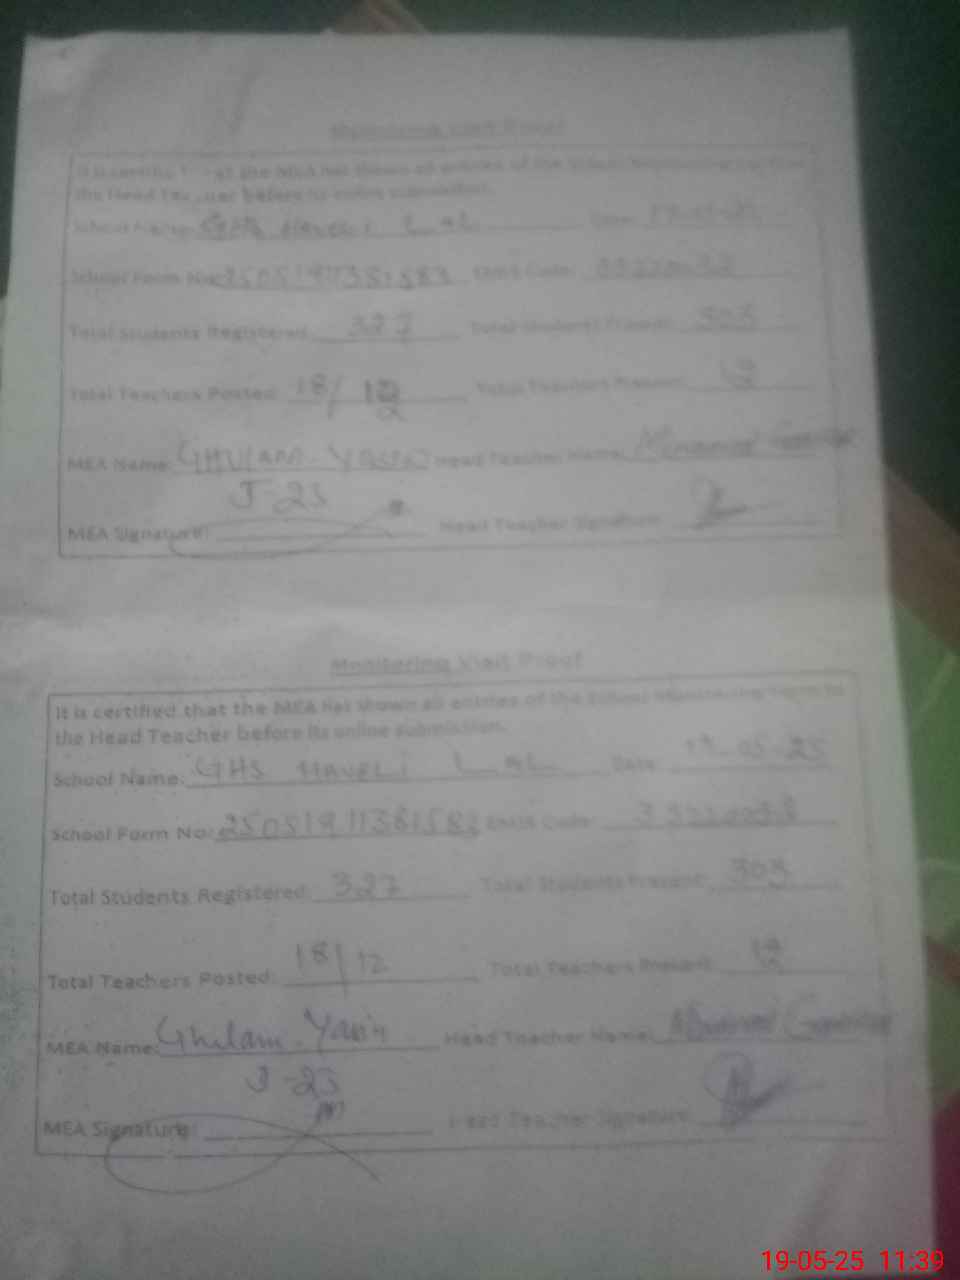 Monitoring Visit Proof
It is certified that the MEA has shown all entries of the School Monitoring Form to
the Head Teacher before its online submission.
School Name: GHS HAVELI LAL Date:
School Form No: EMIS Code:
Total Students Registered: 327 Total Students Present: 303
Total Teachers Posted: 18/12 Total Teachers Present: 12
MEA Name: GHULAM YASEEN Head Teacher Name:
J-23
MEA Signature: Head Teacher Signature:
Monitoring Visit Proof
It is certified that the MEA has shown all entries of the School Monitoring Form to
the Head Teacher before its online submission.
School Name: GHS HAVELI LAL Date: 19-05-25
School Form No: EMIS Code:
Total Students Registered: 327 Total Students Present: 303
Total Teachers Posted: 18/12 Total Teachers Present: 12
MEA Name: Ghulam Yasin Head Teacher Name:
J-23
MEA Signature: Head Teacher Signature:
19-05-25 11:39